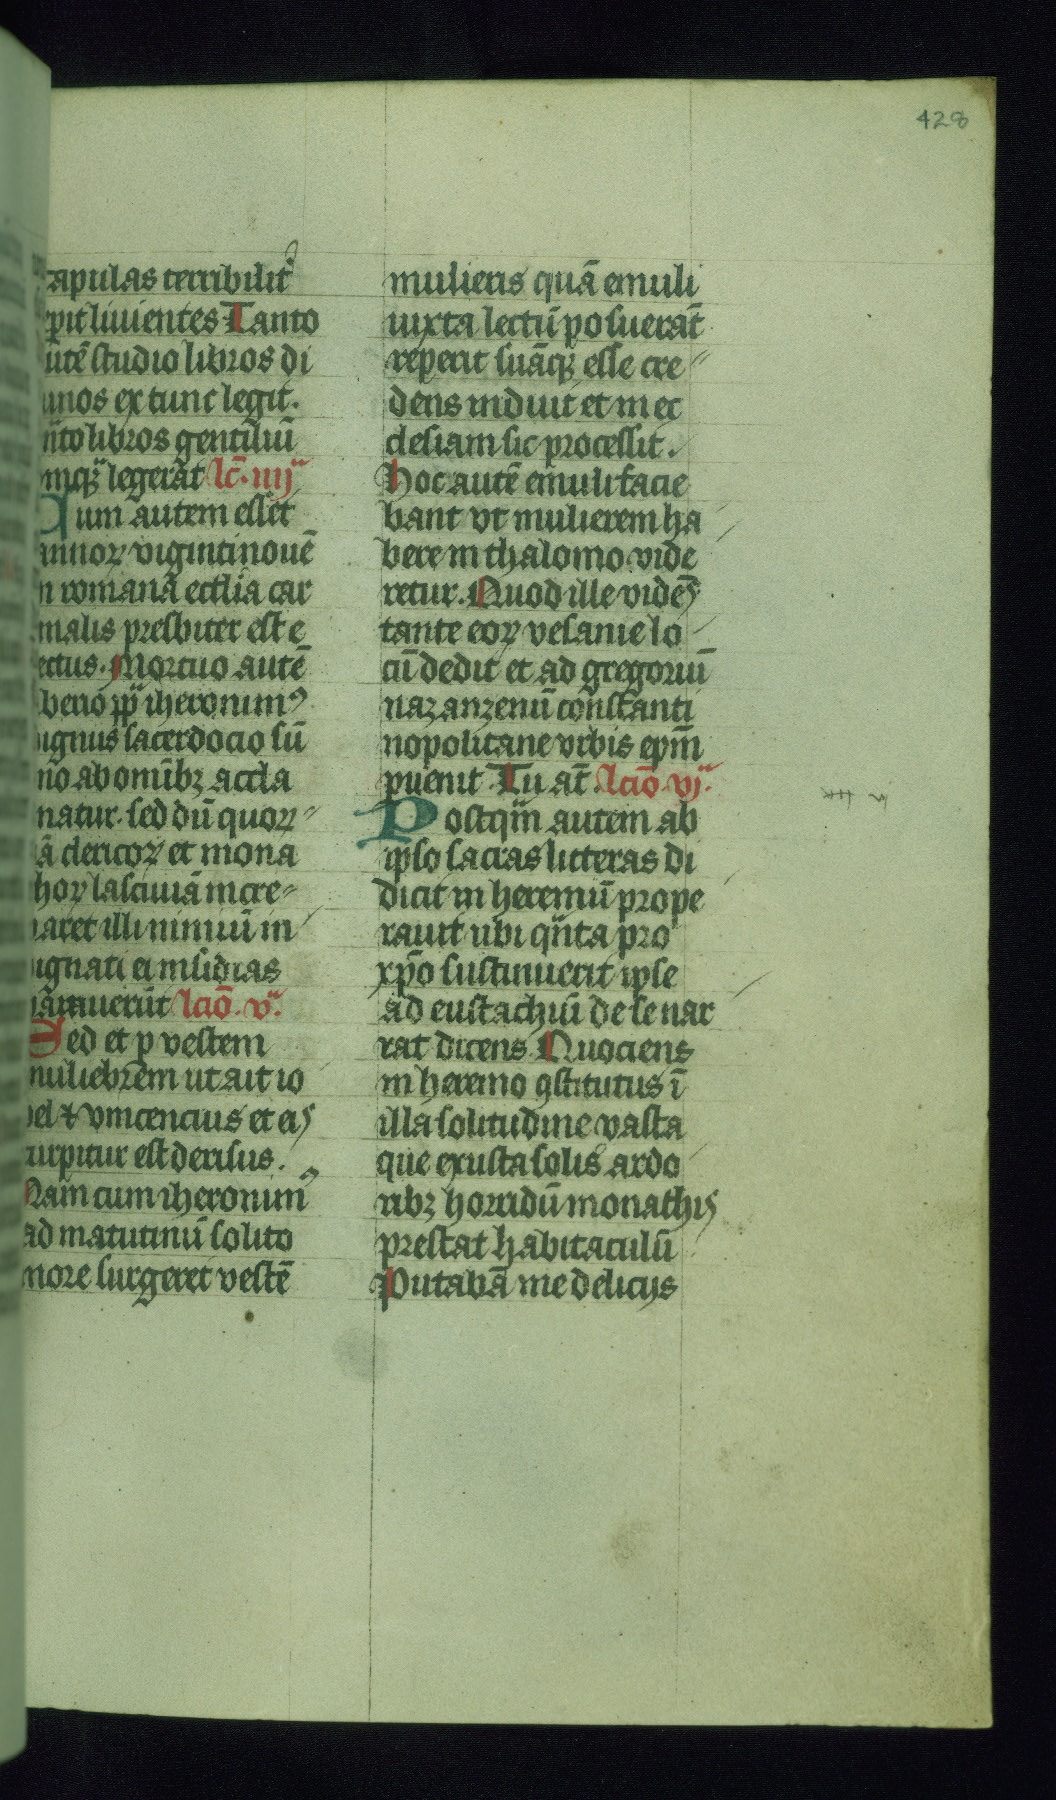 428
apulas terribilit᷒
pit liuientes Tanto
utē studio libros di
unos ex tunc legit.
n̄to libros gentiliū
mq̄ legerāt lc̄. iiij
um autem esset
annoꝝ vigintinouē
n romanā ecclīa car
malis presbiter est e
ectus. Mortuo autē
berio pp̄ iheronimꝰ
ignus sacerdocio sū
mo ab omībꝫ accla
matur. sed dū quoꝝ
ā clericoꝝ et mona
hoꝝ lasciuiā incre
paret illi nimiū in
ignati ei insidias
parauerūt lcīo. v.
Sed et p vestem
muliebrem ut ait io
bel ⁊ vincencius et eis
turpitur est derisus.
Nam cum iheronimꝰ
ad matutinū solito
more surgeret vestē
mulieris quā emuli
iuxta lectū posuerāt
reperit suāqꝫ esse cre
dens induit et in ec
clesiam sic processit.
Hoc autē emuli facie
bant vt mulierem ha
bere in thalomo vide
retur. Quod ille vidēs
tante eoꝝ vesanie lo
cū dedit et ad gregoriū
nazanzenū constanti
nopolitane vrbis epm̄
puenit Tu at̄. lcīo. vj.
Postqm̄ autem ab
ipso sacras litteras di
dicit in heremū prope
rauit ubi qn̄ta pro
xp̄o sustinuerit ipse
ad eustachiū de se nar
rat dicens Quociens
in heremo ꝯstitutus ī
illa solitudine vasta
que exusta solis ardo
ribꝫ horridū monachis
prestat habitaculū
Putabā me delicijs